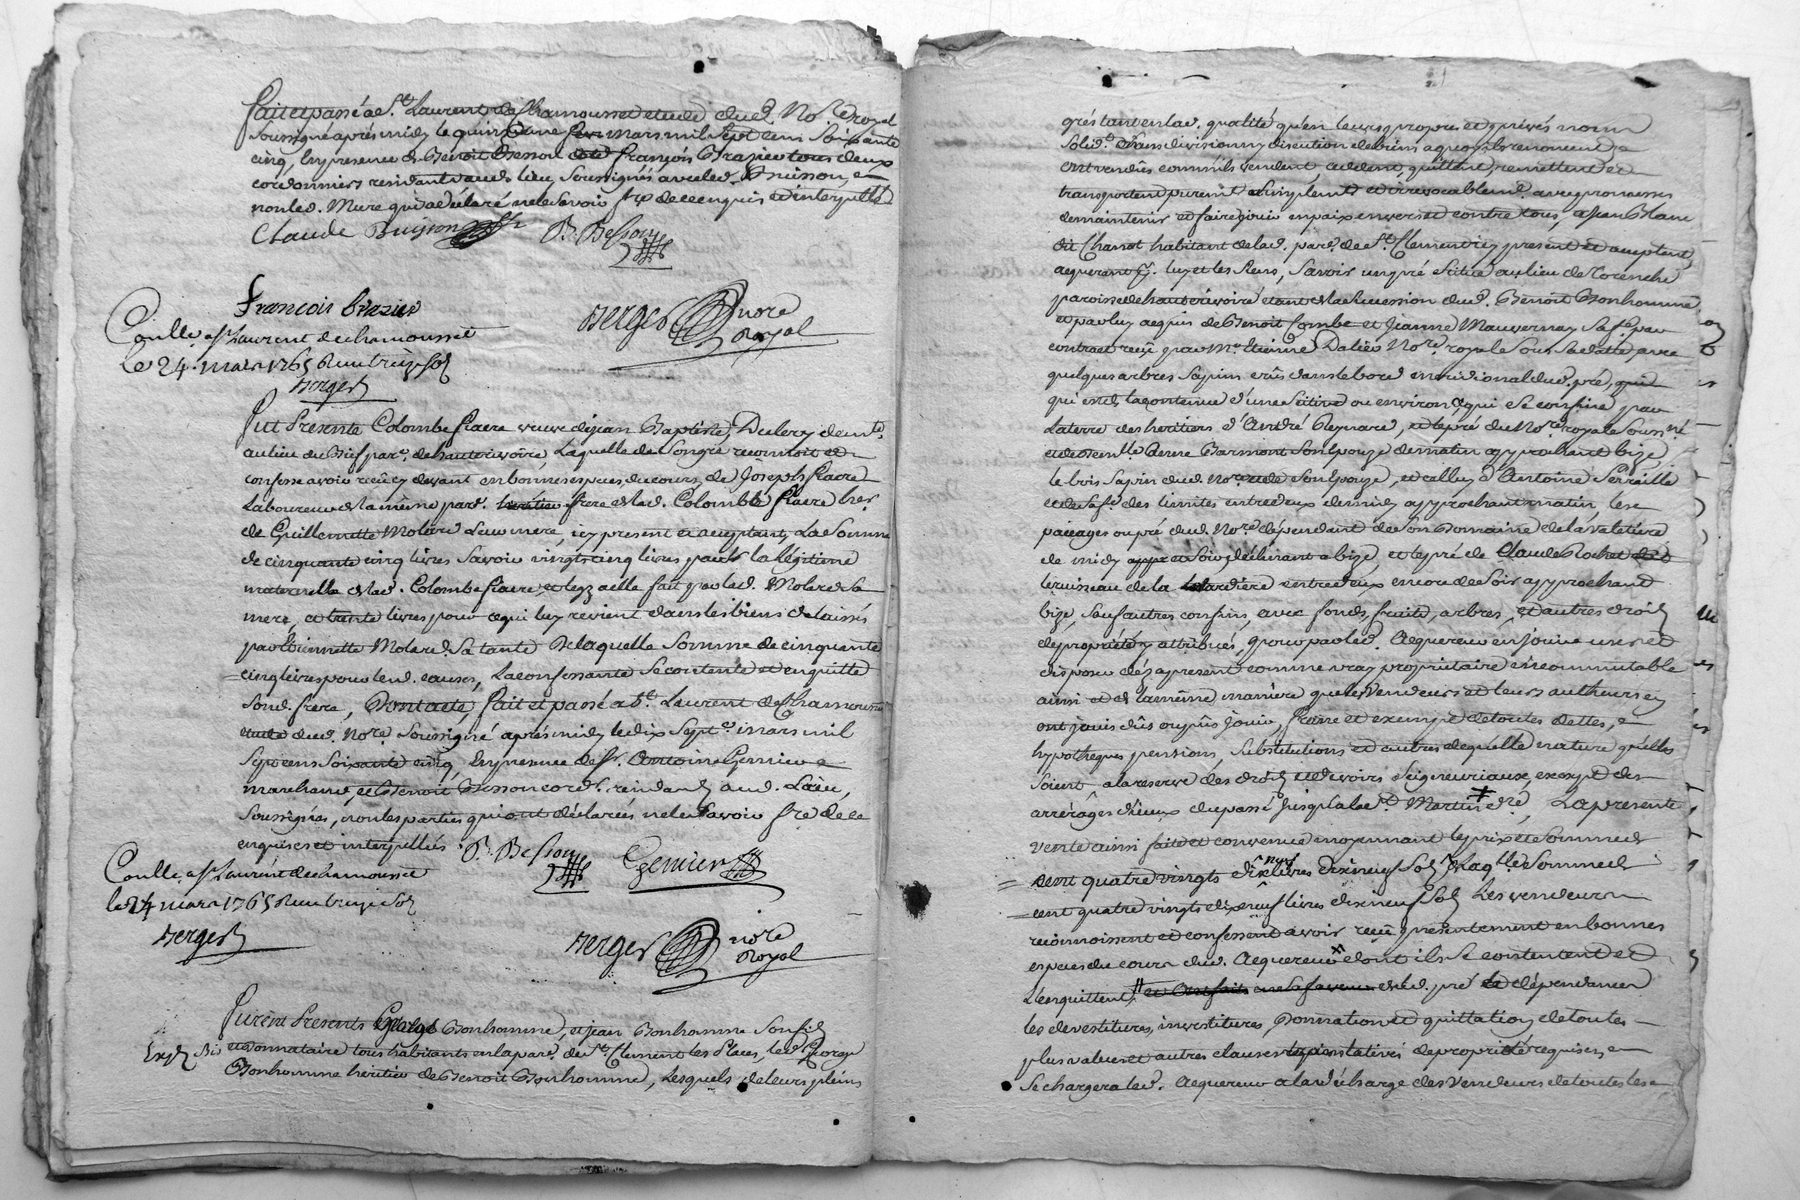 fait et passé a St. Laurent de Chamousset etude dud. No.re Royal
Soussigné après midy le quinzieme mars mil Sept cent Soixante
cinq, En presence de Benoit Besson et de françois Brazier tous deux
cordonniers residants aud. lieu Soussignés avec led. Buisson, e
non led. Mure qui a déclaré ne le Savoir fre de ce enquis et interpellé
Claude Buisson B. Besson
françois brazier
Berger no.re Royal
Conllé. a St Laurent de chamousset
le 24. mars 1765 Reçu treize sols
Berger
fut Presente Colombe fiacre veuve de jean Baptiste Dulery demte.
au lieu du Bief par.e de hauterivoire, Laquelle de Son gré reconnoit et
confesse avoir reçu cy devant en bonnes espèces du cours de Joseph fiacre
Laboureur de la même par.e frere de lad. Colombe fiacre her.
de Guillemette Molard Leur mere, icy present et acceptant, La Somme
de cinquante cinq livres Savoir vingt cinq livres pour la légitime
maternelle de lad. Colombe fiacre, et legs a elle fait par lad. Molard Sa
mere, et trente livres pour ce qui luy revient dans les biens délaissés
par Etiennette Molard Sa tante De laquelle Somme de cinquante
cinq livres pour lesd. causes, La confessante Se contente et en quitte
Sond. frère, Dont acte, fait et passé a St. Laurent de Chamousset
etude dud. No.re Soussigné après midy le dix Sept.e mars mil
Sept cens Soixante cinq, En presence de Sr. Antoine Gernier
marchand, et Benoit Besson cord. residants aud. Lieu,
Soussignés, non les parties qui ont déclarées ne le Savoir fre de ce
enquises et interpellés B. Besson Gernier
Conllé. a St Laurent de chamousset
le 24 mars 1765 Reçu treize sols
Berger
Berger no.re Royal
furent Presents George Bonhomme, et jean Bonhomme Son fils
et donnataire tous habitants en la par.e de St. Clement les Places, led. George
Bonhomme héritier de Benoit Bonhomme, Lesquels de leurs pleins
grés tant en lad. qualité qu'en leurs propres et privés noms
Solid.t Sans division ny discution de biens a quoy ils renoncent
ont vendus comme ils vendent, cedent, quittent, remettent et
transportent purem.t Simplem.t et irrevocablem.t avec promesses
de maintenir et faire jouir en paix envers et contre tous, a jean Blanc
dit Charrot habitant de lad. par.e de St. Clement icy present et acceptant,
acquereur pr. luy et les Siens, Savoir un pré Situé au lieu de
paroisse de hauterivoire étant de la Succession dud. Benoit Bonhomme
et par luy acquis de Benoit Combe et Jeanne Mauvernay Sa fe. par
contract reçu par Me. Etienne Dalier No.re royal Sous Sa datte, avec
quelques arbres Sapins crûs dans le bord meridional dud. pré,
qui est de la contenue d'une Seitine ou environ, qui Se confine par
La terre des heritiers d'André Peynard, et le pré du No.re royal Souss.né
et de dem.lle Pierre Barmont Son Epouze de matin approchant bize,
le bois Sapin dud. No.re et de Son Epouze, et celluy d'Antoine Serraille
et de Sa fe. des limites entredeux de midy approchant matin, les
paccages ou pré dud. No.re dépendant de Son Domaine de la valetiere
de midy et Soir déclinant a bize, et le pré de Claude Rochet
le ruisseau de la entredeux encore de Soir approchant
bize, Sauf autres confins, avec fonds, fruits, arbres, et autres droits
de proprieté y attribués, pour par led. Acquereur en jouir user et
disposer dés a present comme vray proprietaire incommutable
ainsi et de la même maniére que les Vendeurs et leurs autheurs en
ont jouis dûs ou pûs jouir, franc et exempt de toutes dettes, e
hypotheques pensions, Substitutions et autres de quelle nature qu'elles
Soient a la reserve des droits et devoirs Seigneuriaux, excepté des
arrérages d'iceux du passé jusqu'a la St Martin der.e, La presente
vente ainsi faite et convenue moyennant le prix et Somme de
cent quatre vingts dix neuf livres dix neuf Sols, Laq.lle Somme de
cent quatre vingts dix neuf livres dix neuf Sols Les vendeurs
reconnoissent et confessent avoir reçu présentement en bonnes
espèces du cours dud. Acquereur dont ils Se contentent et
L'en quittent, de lad. pré et dépendances
les devestitures, investitures, Donnation et quittation de toutes
plus values et autres clauses translatives de proprieté requises, e
Se chargera led. Acquereur a la décharge des Vendeurs de toutes les